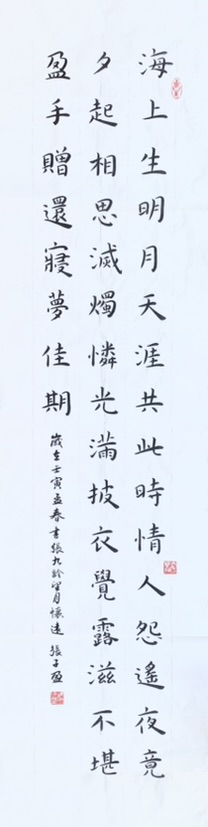 海上生明月天涯共此時情人怨遙夜竟
夕起相思滅燭憐光滿披衣覺露滋不堪
盈手贈還寢夢佳期
歲在壬寅孟春書張九齡望月懷遠 張子盈